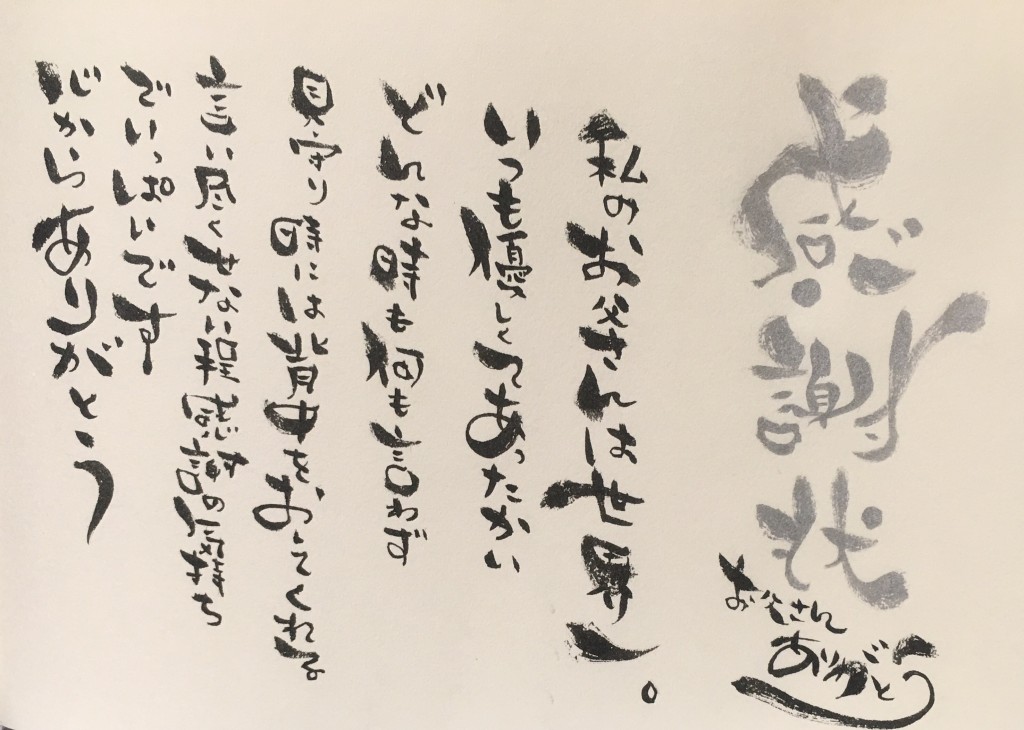 感謝状
お父さん
ありがとう
私のお父さんは世界一。
いつも優しくてあったかい
どんな時も何も言わず
見守り時には背中をおしてくれる
言い尽くせない程感謝の気持ち
でいっぱいです
心からありがとう